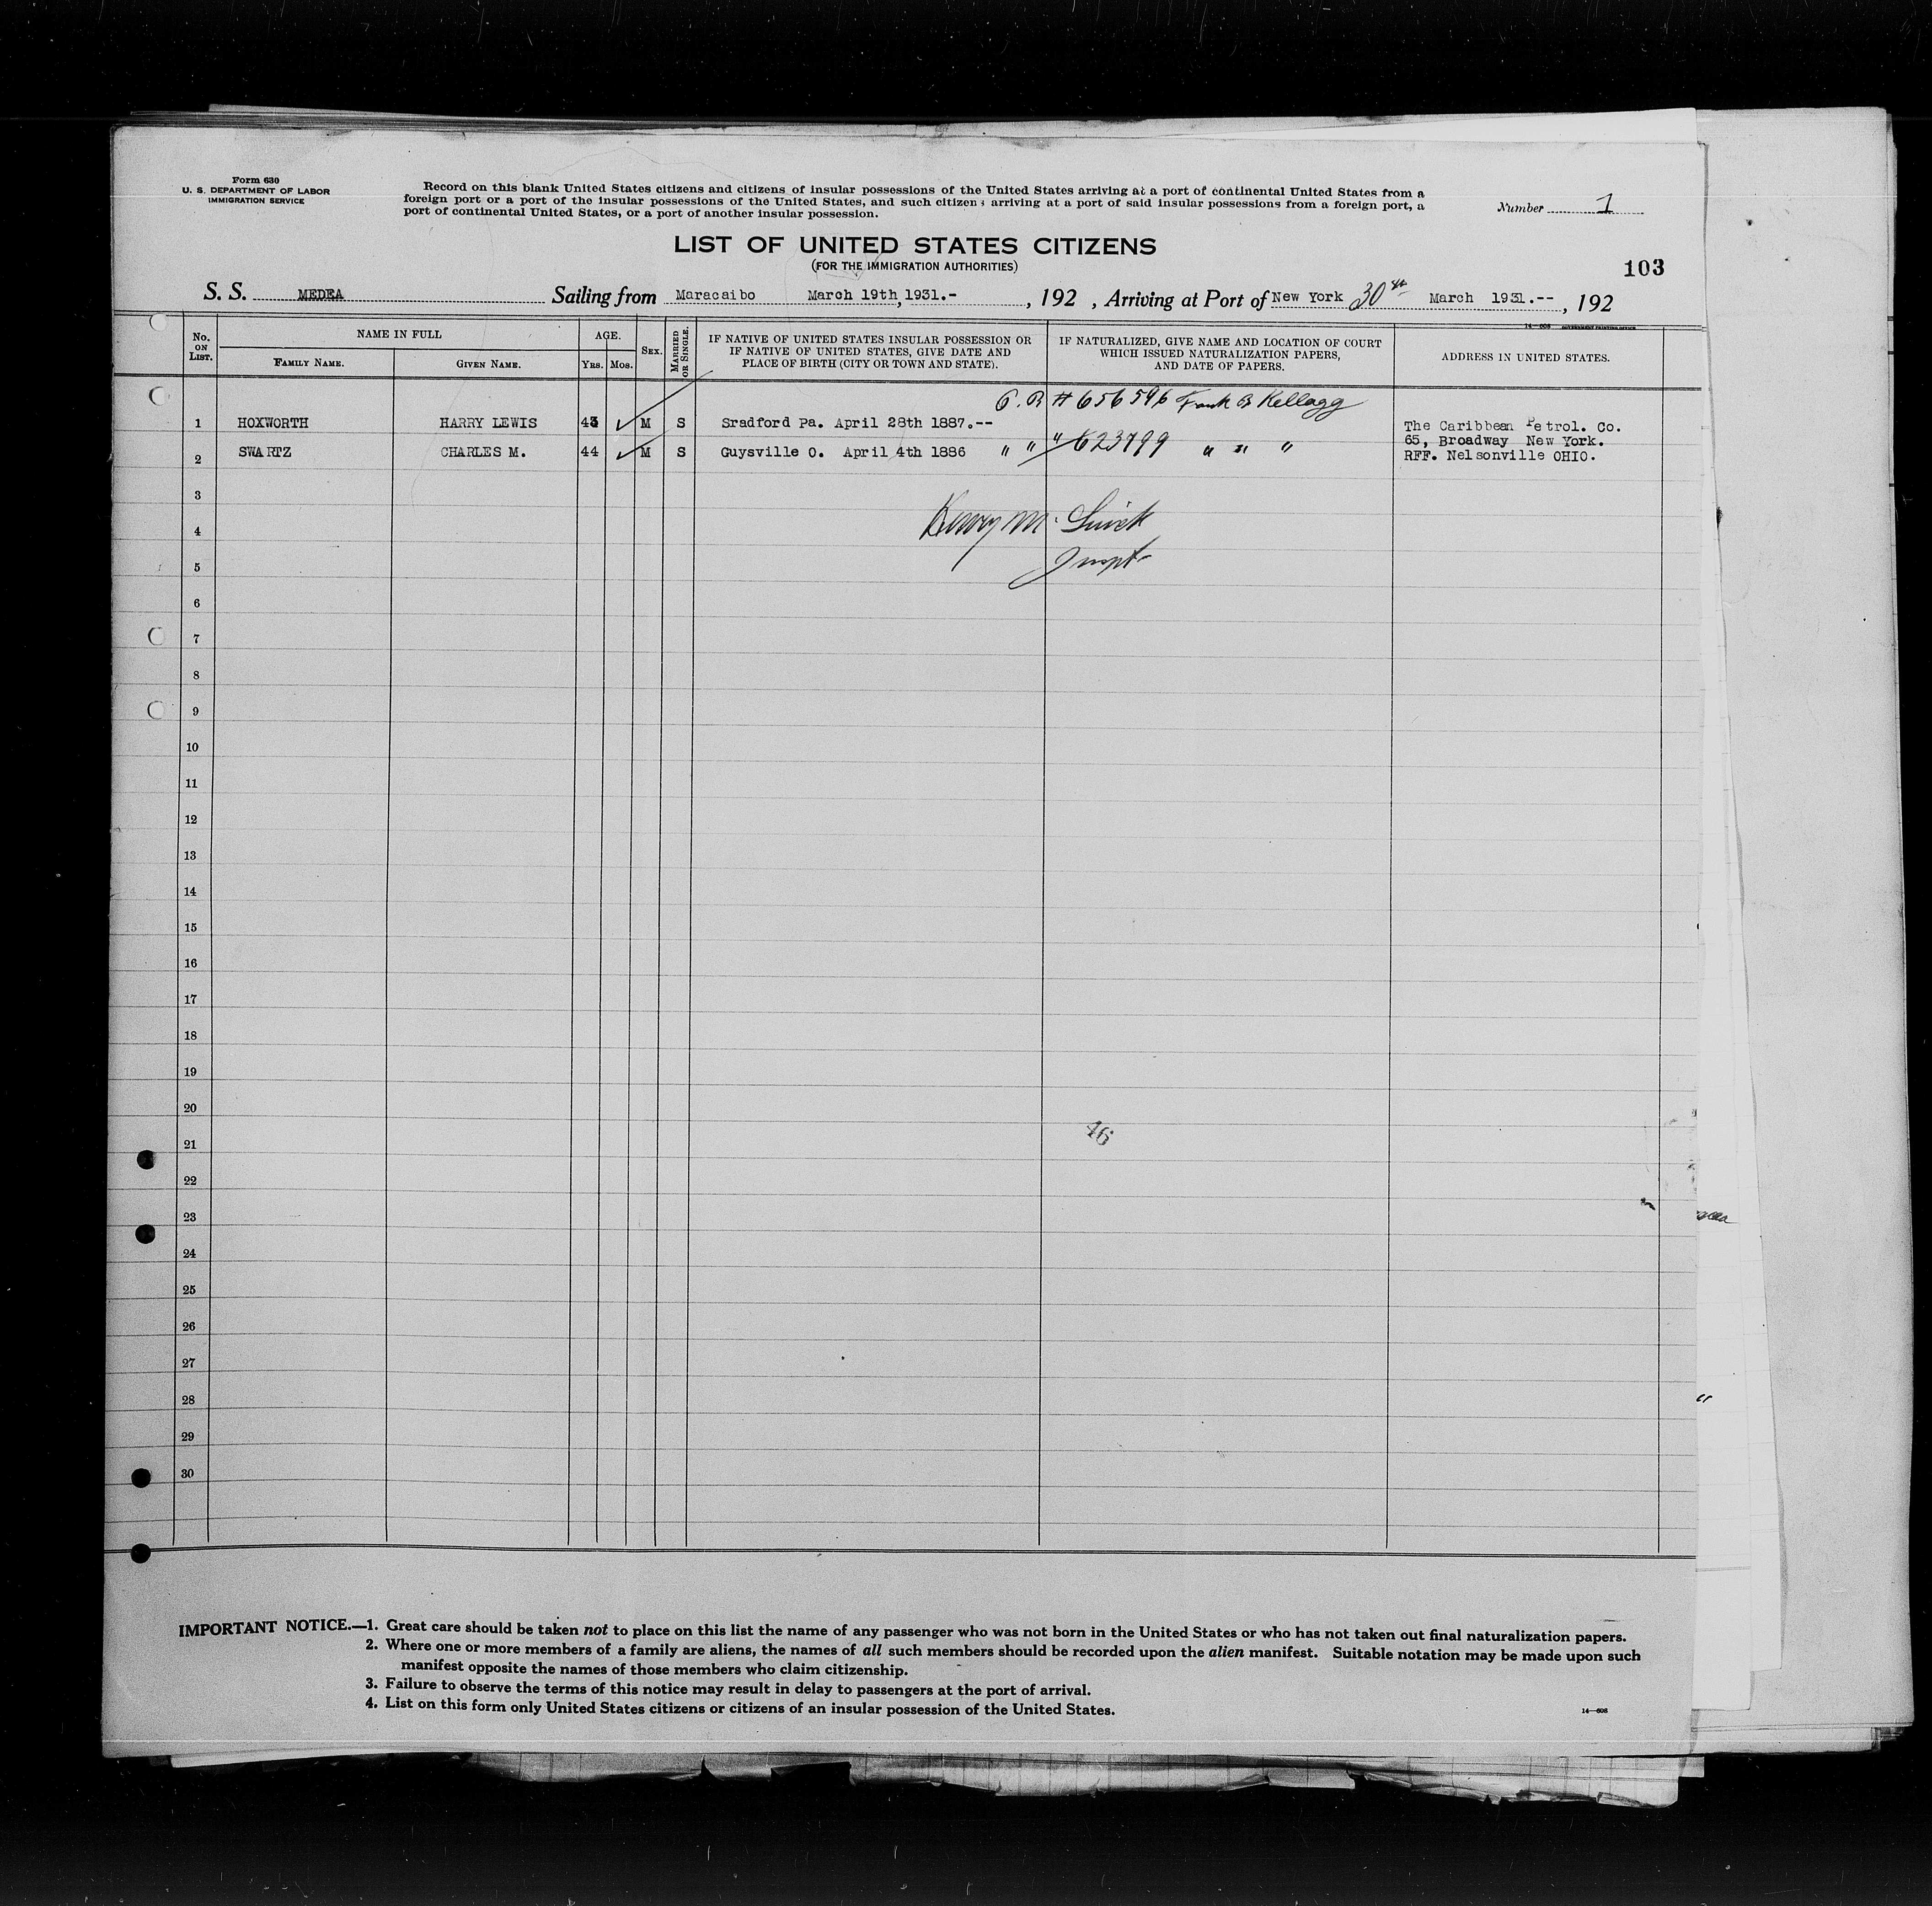 Form 630
U. S. DEPARTMENT OF LABOR
IMMIGRATION SERVICE
Record on this blank United States citizens and citizens of insular possessions of the United States arriving at a port of continental United States from a
foreign port or a port of the insular possessions of the United States, and such citizens arriving at a port of said insular possessions from a foreign port, a
port of continental United States, or a port of another insular possession.
Number 1
LIST OF UNITED STATES CITIZENS
(FOR THE IMMIGRATION AUTHORITIES)
103
S. S. MEDEA Sailing from Maracaibo March 19th, 1931.- , 192 , Arriving at Port of New York 30th March 1931.-- , 192
14—608 GOVERNMENT PRINTING OFFICE
No. ON LIST.
NAME IN FULL
FAMILY NAME. GIVEN NAME.
AGE.
YRS. MOS.
SEX.
MARRIED OR SINGLE.
IF NATIVE OF UNITED STATES INSULAR POSSESSION OR
IF NATIVE OF UNITED STATES, GIVE DATE AND
PLACE OF BIRTH (CITY OR TOWN AND STATE).
IF NATURALIZED, GIVE NAME AND LOCATION OF COURT
WHICH ISSUED NATURALIZATION PAPERS,
AND DATE OF PAPERS.
ADDRESS IN UNITED STATES.
# 656596 Frank B Kellogg
1 HOXWORTH HARRY LEWIS 43 M S Sradford Pa. April 28th 1887.-- The Caribbean Petrol. Co.
65, Broadway New York.
2 SWARTZ CHARLES M. 44 M S Guysville O. April 4th 1886 " " " 623799 " " " RFF. Nelsonville OHIO.
3
4
Inspt
5
6
7
8
9
10
11
12
13
14
15
16
17
18
19
20
21
46
22
23
24
25
26
27
28
29
30
IMPORTANT NOTICE.—1. Great care should be taken not to place on this list the name of any passenger who was not born in the United States or who has not taken out final naturalization papers.
2. Where one or more members of a family are aliens, the names of all such members should be recorded upon the alien manifest. Suitable notation may be made upon such
manifest opposite the names of those members who claim citizenship.
3. Failure to observe the terms of this notice may result in delay to passengers at the port of arrival.
4. List on this form only United States citizens or citizens of an insular possession of the United States.
14—608